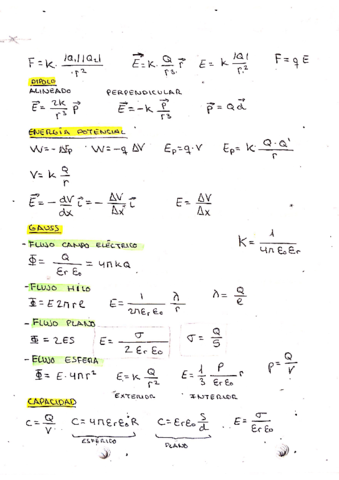 F = k · |Q₁||Q₂| / r²   E⃗ = k · Q / r³ r⃗   E = k |Q| / r²   F = q E
DIPOLO
ALINEADO   PERPENDICULAR
E⃗ = 2k / r³ p⃗   E⃗ = -k p⃗ / r³   p⃗ = Q d⃗
ENERGÍA POTENCIAL
W = -ΔEp   W = -q ΔV   Ep = q · V   Ep = k · Q · Q' / r
V = k Q / r
E⃗ = - dV / dx i⃗ = - ΔV / Δx i⃗   E = ΔV / Δx
GAUSS
- FLUJO CAMPO ELÉCTRICO   K = 1 / 4π ε₀ εr
Φ = Q / εr ε₀ = 4π k Q
- FLUJO HILO
Φ = E 2π r l   E = 1 / 2π εr ε₀ λ / r   λ = Q / l
- FLUJO PLANO
Φ = 2ES   E = σ / 2 εr ε₀   σ = Q / S
- FLUJO ESFERA   ρ = Q / V
Φ = E · 4π r²   E = k Q / r²   E = 1 / 3 ρ / εr ε₀ r
EXTERIOR   INTERIOR
CAPACIDAD
C = Q / V   C = 4π εr ε₀ R   C = εr ε₀ S / d   E = σ / εr ε₀
ESFÉRICO   PLANO